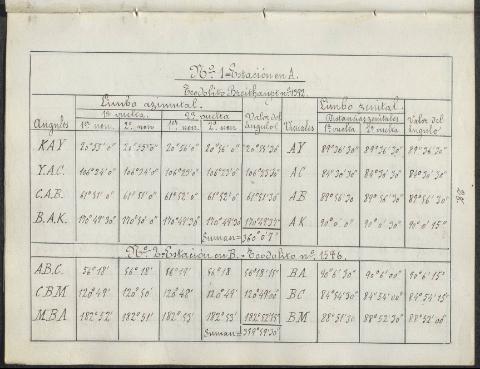 Nº 1 = Estación en A.
Teodolito Breithaupt nº 1392.
Limbo azimutal. Limbo zenital.
1ª vuelta. 2ª vuelta Valor del ángulo Distancias zenitales Valor del ángulo
Angulos 1er non. 2º non 1er non. 2º non. Visuales 1ª vuelta 2ª vuelta
KAY 20°55' 0" 20°55' 0" 20°56' 0" 20°56' 0" 20°55'30" AY 89°36'30" 89°36'30" 89°36'30"
Y.A.C. 106°24' 0" 106°24' 0" 106°23' 0" 106°23' 0" 106°23'30" AC 84°36'30" 84°36'30" 84°36'30"
C.A.B. 61°51' 0" 61°51' 0" 61°52' 0" 61°52' 0" 61°51'30" AB 89°56'30" 89°56'30" 89°56'30"
B.A.K. 170°49'30" 170°50' 0" 170°49'30" 170°49'30" AK 90° 0' 0" 90° 0'30" 90° 0'15"
Suman = 360° 0' 7"
Nº 2 = Estación en B. = Teodolito nº. 1546.
A.B.C. 56°18' 56°18' 56°19' 56°18 56°18'15" BA 90°6'30" 90°6'00" 90°6'15"
C.B.M 120°49' 120°50' 120°48' 120°49' 120°49'00" BC 84°54'30" 84°54'00" 84°54'15"
M.B.A 182°52' 182°51' 182°53' 182°53' 182°52'15" BM 88°51'30" 88°52'30" 88°52'00"
Suman = 359°59'30"